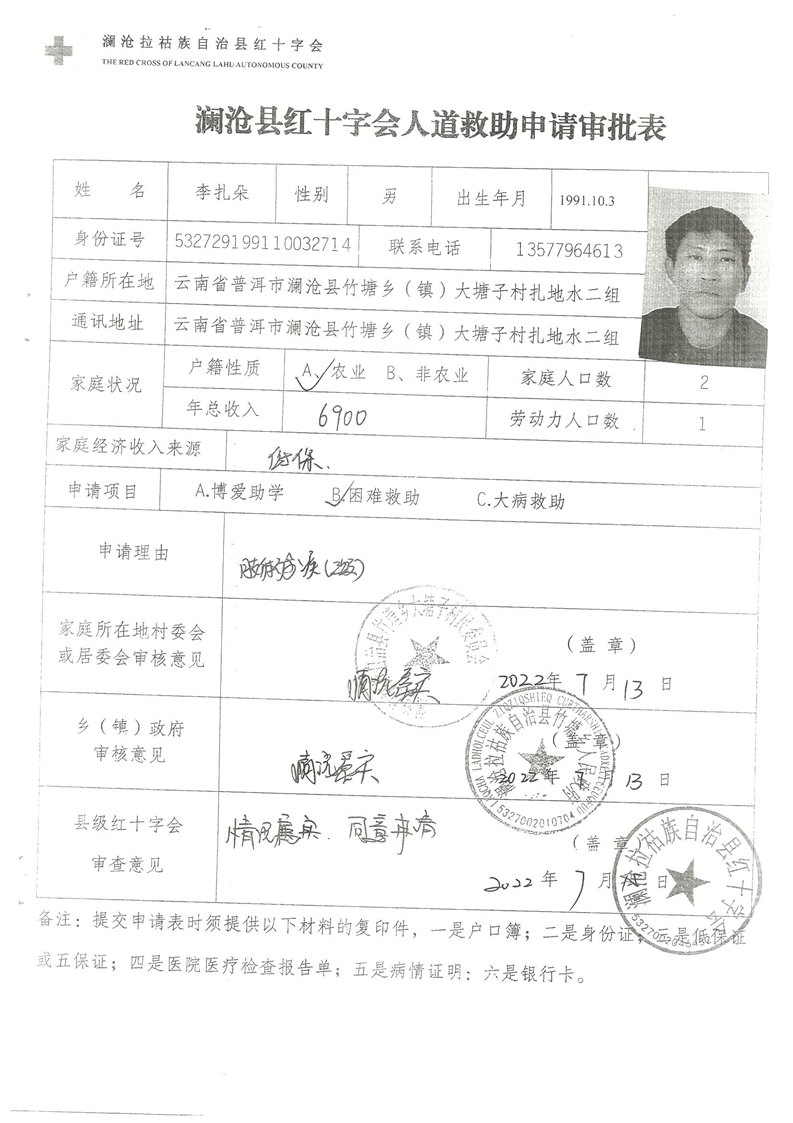 澜沧拉祜族自治县红十字会
THE RED CROSS OF LANCANG LAHU AUTONOMOUS COUNTY
澜沧县红十字会人道救助申请审批表
姓 名 李扎朵 性别 男 出生年月 1991.10.3
身份证号 532729199110032714 联系电话 13577964613
户籍所在地 云南省普洱市澜沧县竹塘乡（镇）大塘子村扎地水二组
通讯地址 云南省普洱市澜沧县竹塘乡（镇）大塘子村扎地水二组
家庭状况 户籍性质 A、✓农业 B、非农业 家庭人口数 2
年总收入 6900 劳动力人口数 1
家庭经济收入来源 低保.
申请项目 A.博爱助学 B.✓困难救助 C.大病救助
申请理由 (2级)
家庭所在地村委会
或居委会审核意见
情况属实
（盖 章）
2022年 7 月 13 日
乡（镇）政府
审核意见
情况属实
（盖 章）
2022年 7 月 13 日
竹塘乡人民政府
5327002010704
县级红十字会
审查意见
情况属实. 同意申请
（盖 章）
2022 年 7 月 日
澜沧拉祜族自治县红十字会
备注：提交申请表时须提供以下材料的复印件，一是户口簿；二是身份证；三是低保证
或五保证；四是医院医疗检查报告单；五是病情证明：六是银行卡。